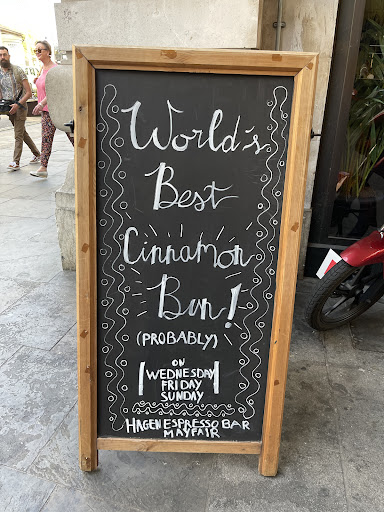 World's
Best
Cinnamon
Bun!
(PROBABLY)
ON
WEDNESDAY
FRIDAY
SUNDAY
HAGEN ESPRESSO BAR
MAYFAIR